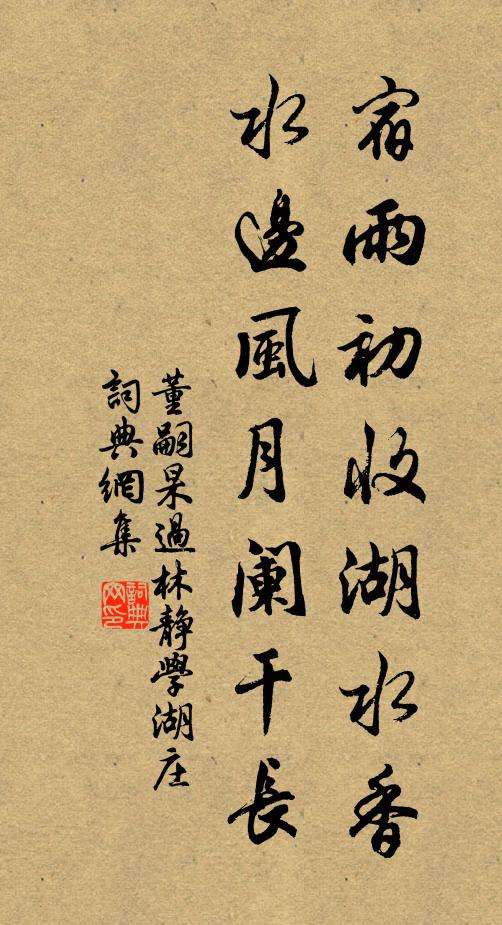 宿雨初收湖水香
水邊風月闌干長
董嗣杲過林靜學湖庄
詞典網集
詞典網印